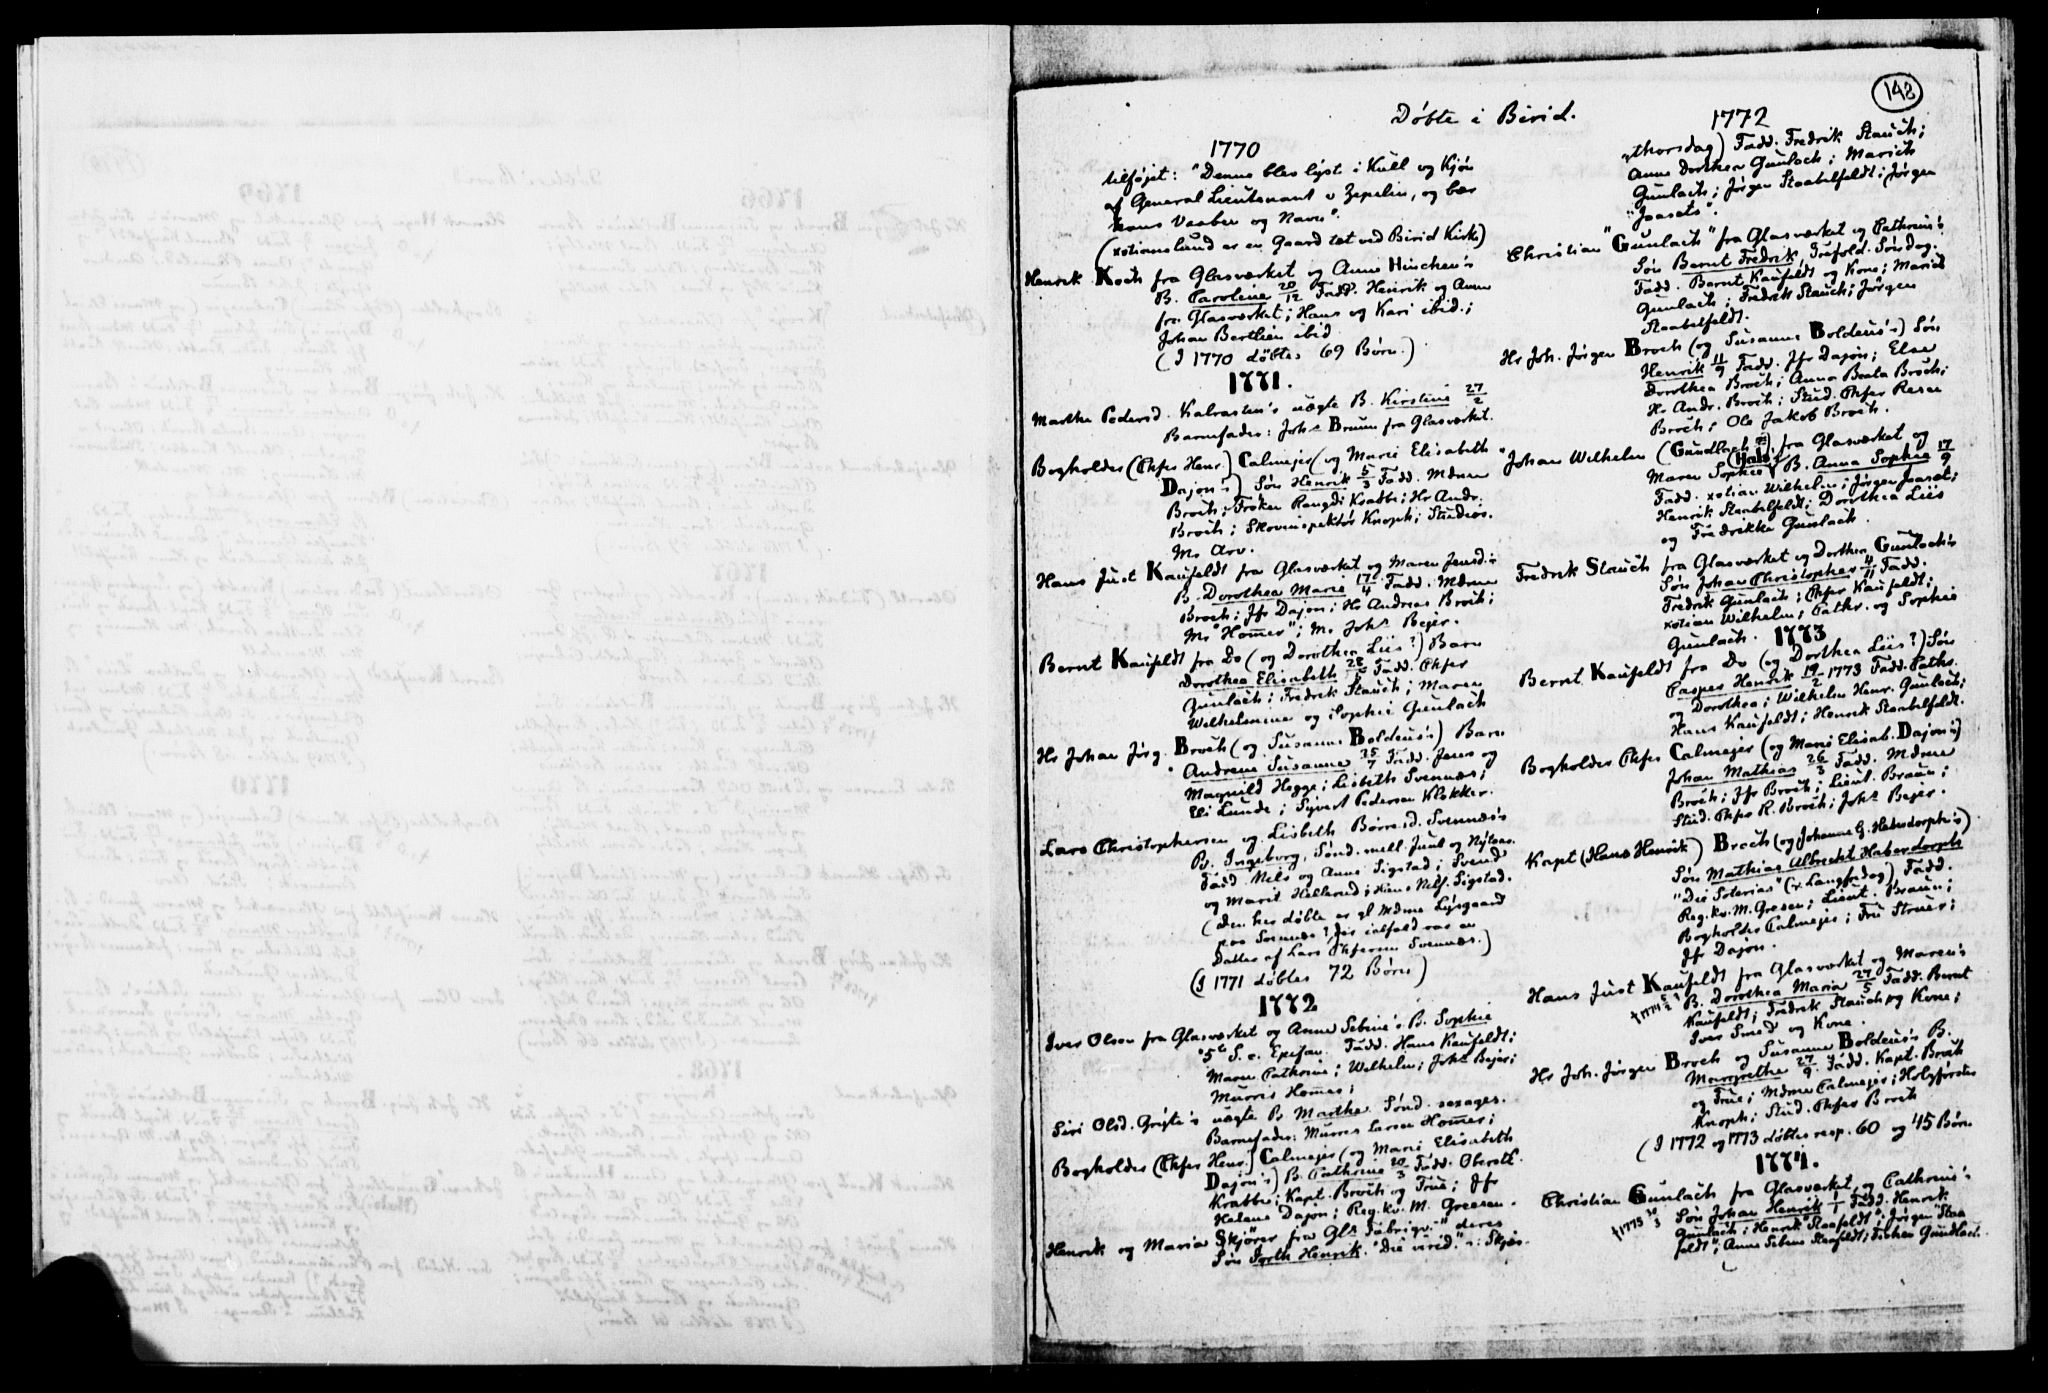 148
Døbte i Birid.
1770
tilføjet: "Denne blev lyst i Kull og Kjøn
af General Lieutenant v Zepelin, og bær
hans Vaaben og Navn".
(xstianslund er en Gaard tæt ved Birid Kirke)
Henrik Koch fra Glasværket og Anne Hinchen's
B. Caroline 20/12 Fadd. Henrik og Anne
fra Glasværket; Hans og Kari ibid.;
Johan Berthien ibid
(I 1770 døbtes 69 Børn.)
1771.
Marthe Pedersd. Kalvasten's uægte B. Kirstine 27/2
Barnefader: Johs Bruun fra Glasværket.
Bogholder (Chfer Henr.) Calmejer (og Marie Elisabeth
Dajon's) Søn Henrik 5/3 Fadd. Mdme
Broch; Frøken Rangdi Krabbe; Hr Andr.
Broch; Skovinspektør Knoph; Studios.
Ms Arv.
Hans Just Kaufeldt fra Glasværket og Maren Jensd.'s
B. Dorothea Marie 17/4 Fadd. Mdme
Broch; Jfr Dajon; Hr Andreas Broch;
Ms "Homer"; Ms Johs Bejer.
Bernt Kaufeldt fra Do (og Dorothea Liis?) Barn
Dorothea Elisabeth 28/5 Fadd. Chfer
Gunlach; Fredrik Stauch; Maren
Wilhelmine og Sophie Gunlach
Hr Johan Jørg. Broch (og Susanne Boldeus's) Barn
Andrene Susanne 25/7 Fadd. Jens og
Magnild Hegge; Lisbeth Svennæs;
Eli Lunde; Syvert Pedersen Klokker.
Lars Christophersen og Lisbeth Børresd. Svennæs's
B. Ingeborg, Sønd. mell. Juul og Nytaar.
Fadd Niels og Anne Sigstad; Svend
og Marit Hellerud; Hans Nils. Sigstad.
(Den her døbte er gl Mdme Lysgaard
paa Svennæs? der ialfald var en
Datter af Lars Chfersen Svennæs.)
(I 1771 døbtes 72 Børn)
1772
Iver Olsen fra Glasværket og Anne Sebine's B. Sophie
"5te S. e. Epifan. Fadd. Hans Kaufeldt;
Maren Cathrine; Wilhelm; Johs Bejer;
Murres Homes;
Siri Olsd. Grytes's uægte B Marthe Sønd. sexages.
Barnefader: Murres Larsen Homer;
Bogholder (Chfer Henr) Calmejer (og Marie Elisabeth
Dajon's) B. Cathrine 20/3 Fadd. Oberstl.
Krabbe; Kapt. Broch og Frue; Jfr
Helene Dajon; Reg.kv. M. Greesen.
Henrik og Maria Skjører fra Gls Fabriqv-" deres
Søn Jorth Henrik. "Die virid." Skjør-
1772
"thorsdag) Fadd. Fredrik Stauch;
Anne Dorthea Gunlach; Marich
Gunlach; Jørgen Staabelfeldt; Jørgen
"Jaasets".
Christian "Gunlach" fra Glasværket og Cathrine's
Søn Bernt Fredrik, Trefold. Søndag.
Fadd. Bernt Kaufeldt og Kone; Marich
Gunlach; Fredrik Stauch; Jørgen
Staabelfeldt.
Hr Joh. Jørgen Broch (og Susanne Boldeus's) Søn
Henrik 11/9 Fadd. Jfr Dajon; Else
Dorothea Broch; Anna Beata Broch;
Hr Andr. Broch; Stud. Chfer Resen
Broch; Ole Jakob Broch.
Johan Wilhelm (Gundlach?) fra Glasværket og
(Hals)
Maren Sophies B. Anna Sophie 17/9
Fadd. xstian Wilhelm; Jørgen Jaaset;
Henrik Staabelfeldt; Dorothea Liis
og Fredrikke Gunlach.
Fredrik Stauch fra Glasværket og Dorthea Gunlach's
Søn Johan Christopher "/11 Fadd.
Fredrik Gunlach; Chfer Kaufeldt;
xstian Wilhelm; Cathr. og Sophie
Gunlach.
1773
Bernt Kaufeldt fra Do (og Dorthea Liis?) Søn
Casper Henrik 19/2 1773 Fadd. Cathr.
og Dorothea; Wilhelm Henr. Gunlach;
Hans Kaufeldt; Henrik Staabelfeldt.
Bogholder Chfer Calmejer (og Marie Elisab. Dajon's)
Johan Mathias 26/3 Fadd. Mdme
Broch; Jfr Broch; Lieut. Braun;
Stud. Chfer R. Broch; Johs Bejer.
Kapt (Hans Henrik) Broch (og Johanne G. Haberdorph's)
Søn Mathias Albrecht Haberdorph
"Die Soterias" (ɔ: Langfredag) Fadd.
Reg.kv. M. Gresen; Lieut. Braun;
Bogholder Calmejer; Fru Struer;
Jfr Dajon.
Hans Just Kaufeldt fra Glasværket og Maren's
†1774 5/2 ?
B. Dorothea Maria 27/5 Fadd. Bernt
Kaufeldt; Fredrik Stauch og Kone;
Iver Smed og Kone.
Hr Joh. Jørgen Broch og Susanne Boldeus's B.
Margrethe 27/9 Fadd. Kapt. Broch
og Frue; Mdme Calmejer; Holzførster
Knoph; Stud. Chfer Broch
(I 1772 og 1773 døbtes resp. 60 og 45 Børn
1774.
Christian Gunlach fra Glasværket og Cathrine's
†1775 30/3
Søn Johan Henrik 1/1 Fadd. Henrik
Gunlach; Henrik "Staafeldt"; Jørgen "Staa
feldt"; Anne Sebine Staafeldt; Fichen Gundlach.